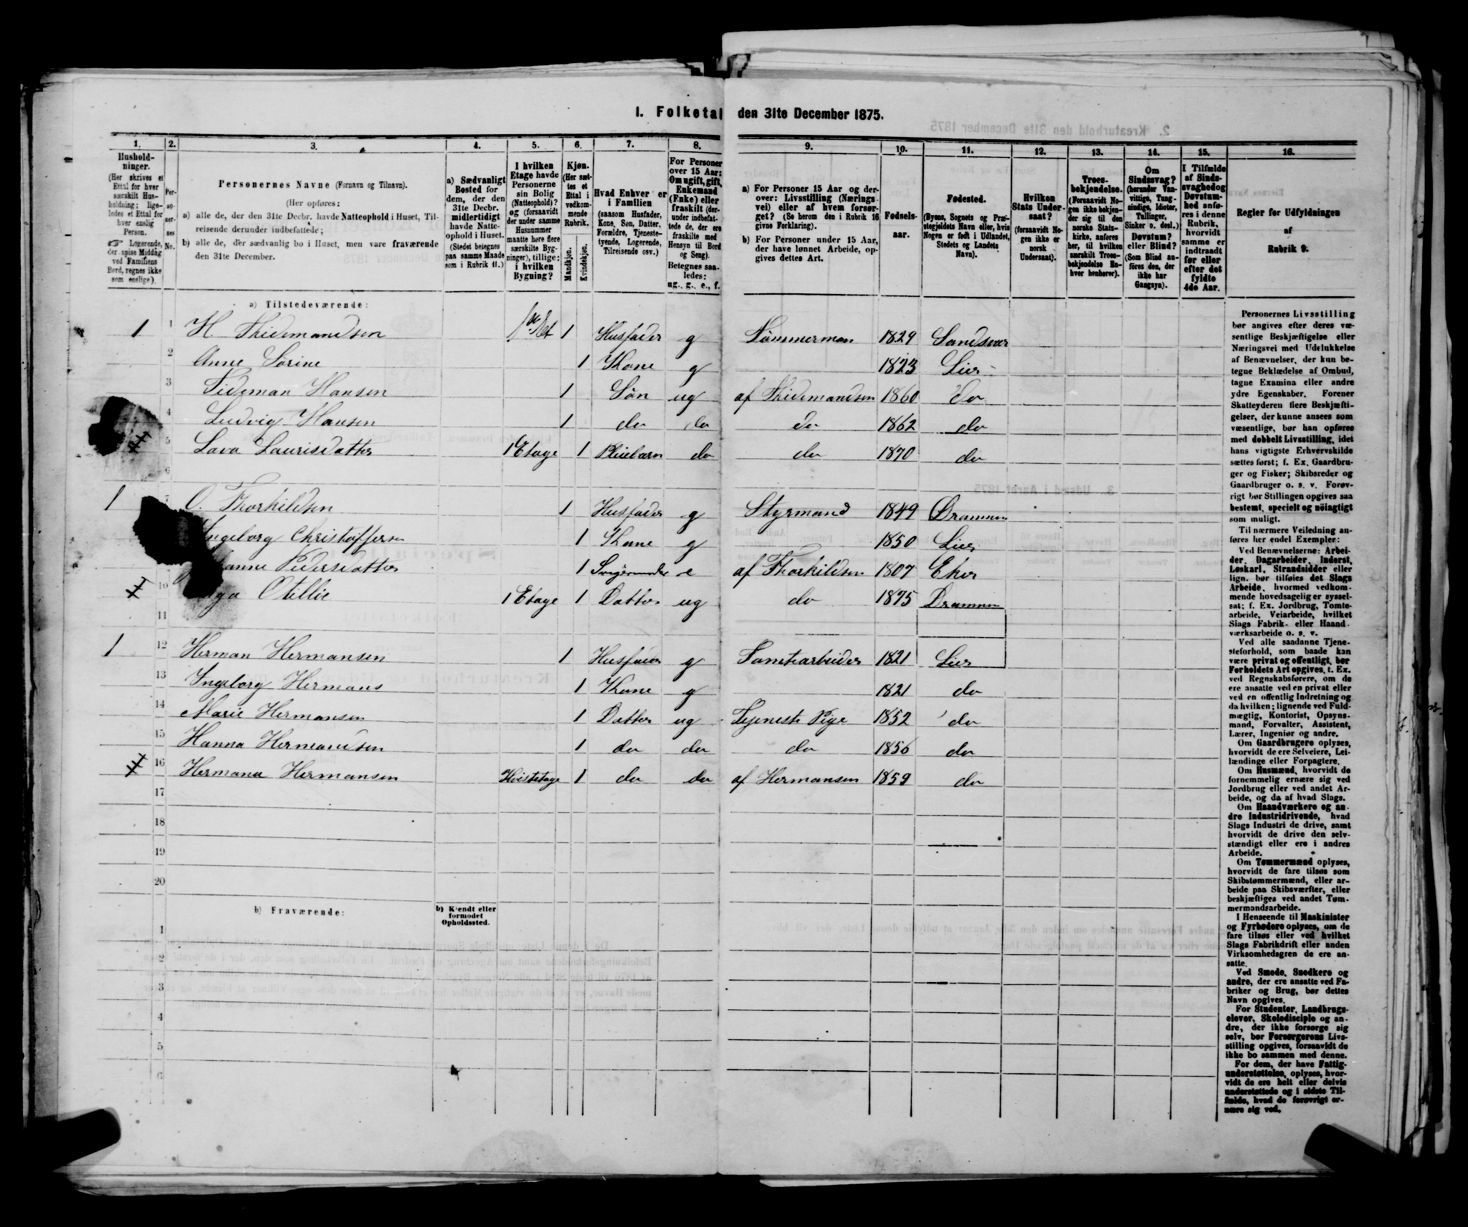 1. Folketal den 31te December 1875.
1. 2. 3. 4. 5. 6. 7. 8. 9. 10. 11. 12. 13. 14. 15. 16.
Personernes Navne (Fornavn og Tilnavn).
(Her opføres:
a) alle de, der den 31te Decbr. havde Natteophold i Huset, Til-
reisende derunder indbefattede;
b) alle de, der sædvanlig bo i Huset, men vare fraværende
den 31te December.
a) Sædvanligt
Bosted for
dem, der den
31te Decbr.
midlertidigt
havde Natte-
ophold i Huset.
(Stedet betegnes
paa samme Maade
som i Rubrik 11.)
I hvilken
Etage havde
Personerne
sin Bolig
(Natteophold)?
og (forsaavidt
der under samme
Husnummer
maatte høre flere
særskilte Byg-
ninger), tillige:
i hvilken
Bygning?
Kjøn.
Mandkjøn.
Kvindekjøn.
Hvad Enhver er
i Familien
(saasom Husfader,
Kone, Søn, Datter,
Forældre, Tjeneste-
tyende, Logerende,
Tilreisende osv.)
For Personer
over 15 Aar:
Om ugift, gift,
Enkemand
(Enke) eller
fraskilt (der-
under indbefat-
tede de, der ere
fraskilte med
Hensyn til Bord
og Seng).
Betegnes saa-
ledes:
ug., g., e., f.
a) For Personer 15 Aar og der-
over: Livsstilling (Nærings-
vei) eller af hvem forsør-
get? (Se herom den i Rubrik 16
givne Forklaring).
b) For Personer under 15 Aar,
der have lønnet Arbeide, op-
gives dettes Art.
Fødsels-
aar.
Fødested.
(Byens, Sognets og Præ-
stegjeldets Navn eller, hvis
Nogen er født i Udlandet,
Stedets og Landets
Navn).
Hvilken
Stats Under-
saat?
(forsaavidt No-
gen ikke er
norsk
Undersaat).
Troes-
bekjendelse.
(Forsaavidt No-
gen ikke bekjen-
der sig til den
norske Stats-
kirke, anføres
her, til hvilken
særskilt Troes-
bekjendelse En-
hver henhører).
Om
Sindssvag?
(herunder Van-
vittige, Tung-
sindige, Idioter,
Tullinger,
Sinker o. desl.)
Døvstum?
eller Blind?
(Som Blind an-
føres den, der
ikke har
Gangsyn).
I Tilfælde
af Sinds-
svaghed og
Døvstum-
hed anfø-
res i denne
Rubrik,
hvorvidt
samme er
indtraadt
før eller
efter det
fyldte
4de Aar.
Regler for Udfyldningen
af
Rubrik 9.
a) Tilstedeværende:
1 1 H. Thidemandsen 1ste Et 1 Husfader g Tømmerman 1829 Sandsvær
2 Anne Sørine 1 Kone g 1823 Lier
3 Tideman Hansen 1 Søn ug af Thidemandsen 1860 do
4 Ludvig Hansen 1 do do do 1862 do
5 Lava Laurisdatter 1 Etage 1 Pleiebarn do do 1870 do
6
1 7 O. Thorkildsen 1 Husfader g Styrmand 1849 Drammen
Ingeborg Christoffersen 1 Kone g 1850 Lier
Pedersdatter 1 Svigermoder e af Thorkildsen 1807 Eker
10 Otillie 1 Etage 1 Datter ug do 1875 Drammen
11
1 12 Herman Hermansen 1 Husfader g Tomtearbeider 1821 Lier
13 Ingeborg Hermans 1 Kone g 1821 do
14 Marie Hermansen 1 Datter ug Tjeneste Pige 1852 do
15 Hanna Hermansen 1 do do do 1856 do
16 Hermana Hermansen Kvistetage 1 do do af Hermansen 1859 do
17
18
19
20
b) Fraværende:
b) Kjendt eller
formodet
Opholdssted.
1
2
3
4
5
6
Personernes Livsstilling
bør angives efter deres væ-
sentlige Beskjæftigelse eller
Næringsvei med Udelukkelse
af Benævnelser, der kun be-
tegne Beklædelse af Ombud,
tagne Examina eller andre
ydre Egenskaber. Forener
Skatteyderen flere Beskjæfti-
gelser, der kunne ansees som
væsentlige, bør han opføres
med dobbelt Livsstilling, idet
hans vigtigste Erhvervskilde
sættes først; f. Ex. Gaardbru-
ger og Fisker; Skibsreder og
Gaardbruger o. s. v. Forøv-
rigt bør Stillingen opgives saa
bestemt, specielt og nøiagtigt
som muligt.
Til nærmere Veiledning an-
føres her endel Exempler:
Ved Benævnelserne: Arbei-
der, Dagarbeider, Inderst,
Løskarl, Strandsidder eller
lign. bør tilføies det Slags
Arbeide, hvormed vedkom-
mende hovedsagelig er syssel-
sat; f. Ex. Jordbrug, Tomte-
arbeide, Veiarbeide, hvilket
Slags Fabrik- eller Haand-
værksarbeide o. s. v.
Ved alle saadanne Tjene-
steforhold, som baade kan
være privat og offentligt, bør
Forholdets Art opgives, t. Ex.
ved Regnskabsførere, om de
ere ansatte ved en privat eller
ved en offentlig Indretning og
da hvilken; lignende ved Fuld-
mægtig, Kontorist, Opsyns-
mand, Forvalter, Assistent,
Lærer, Ingeniør og andre.
Om Gaardbrugere oplyses,
hvorvidt de ere Selveiere, Lei-
lændinge eller Forpagtere.
Om Husmænd, hvorvidt de
fornemmelig ernære sig ved
Jordbrug eller ved andet Ar-
beide, og da af hvad Slags.
Om Haandværkere og an-
dre Industridrivende, hvad
Slags Industri de drive, samt
hvorvidt de drive den selv-
stændigt eller ere i andres
Arbeide.
Om Tømmermænd oplyses,
hvorvidt de fare tilsøs som
Skibstømmermænd, eller ar-
beide paa Skibsværfter, eller
beskjæftiges ved andet Tøm-
mermandsarbeide.
I Henseende til Maskinister
og Fyrbødere oplyses, om de
fare tilsøs eller ved hvilket
Slags Fabrikdrift eller anden
Virksomhedsgren de ere an-
satte.
Ved Smede, Snedkere og
andre, der ere ansatte ved Fa-
briker og Brug, bør dettes
Navn opgives.
For Studenter, Landbrugs-
elever, Skoledisciple og an-
dre, der ikke forsørge sig
selv, bør Forsørgerens Livs-
stilling opgives, forsaavidt de
ikke bo sammen med denne.
For dem, der have Fattig-
understøttelse, oplyses, hvor-
vidt de ere helt eller delvis
understøttede og i sidste Til-
fælde, hvad de forøvrigt er-
nære sig ved.